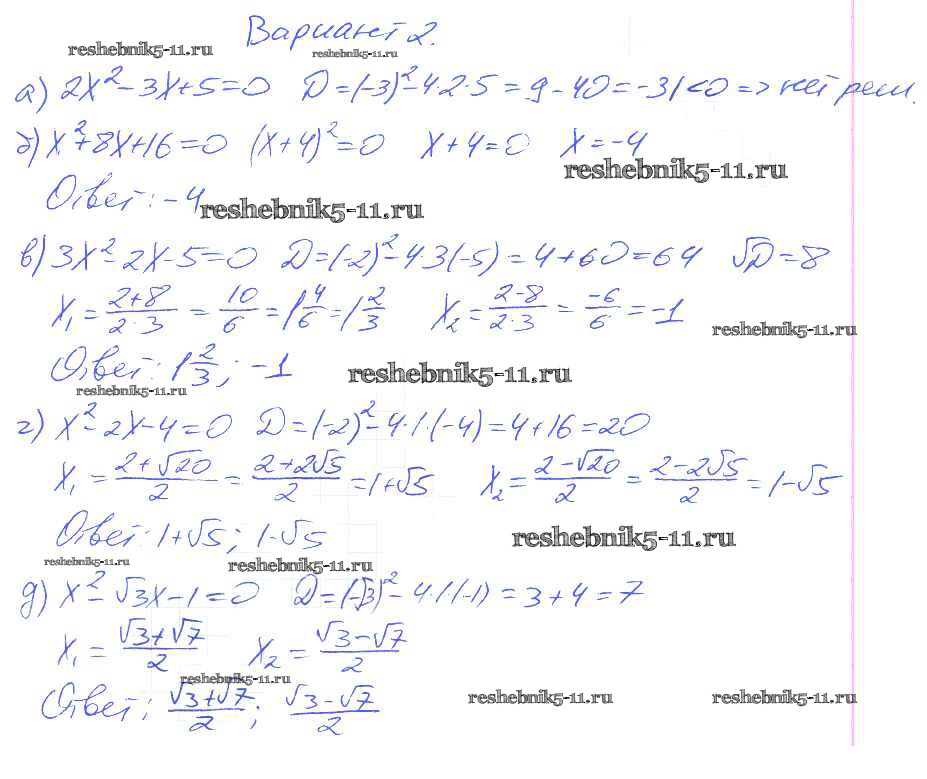 Вариант 2.
reshebnik5-11.ru reshebnik5-11.ru
а) 2x² - 3x + 5 = 0 D = (-3)² - 4·2·5 = 9 - 40 = -31 < 0 => нет реш.
б) x² + 8x + 16 = 0 (x + 4)² = 0 x + 4 = 0 x = -4
reshebnik5-11.ru
Ответ: -4
reshebnik5-11.ru
в) 3x² - 2x - 5 = 0 D = (-2)² - 4·3(-5) = 4 + 60 = 64 √D = 8
x₁ = (2+8)/(2·3) = 10/6 = 1 4/6 = 1 2/3 x₂ = (2-8)/(2·3) = -6/6 = -1
reshebnik5-11.ru
Ответ: 1 2/3; -1
reshebnik5-11.ru
reshebnik5-11.ru
г) x² - 2x - 4 = 0 D = (-2)² - 4·1·(-4) = 4 + 16 = 20
x₁ = (2+√20)/2 = (2+2√5)/2 = 1+√5 x₂ = (2-√20)/2 = (2-2√5)/2 = 1-√5
Ответ: 1+√5; 1-√5
reshebnik5-11.ru
reshebnik5-11.ru reshebnik5-11.ru
д) x² - √3x - 1 = 0 D = (-√3)² - 4·1·(-1) = 3 + 4 = 7
x₁ = (√3+√7)/2 x₂ = (√3-√7)/2
reshebnik5-11.ru
Ответ: (√3+√7)/2; (√3-√7)/2
reshebnik5-11.ru reshebnik5-11.ru